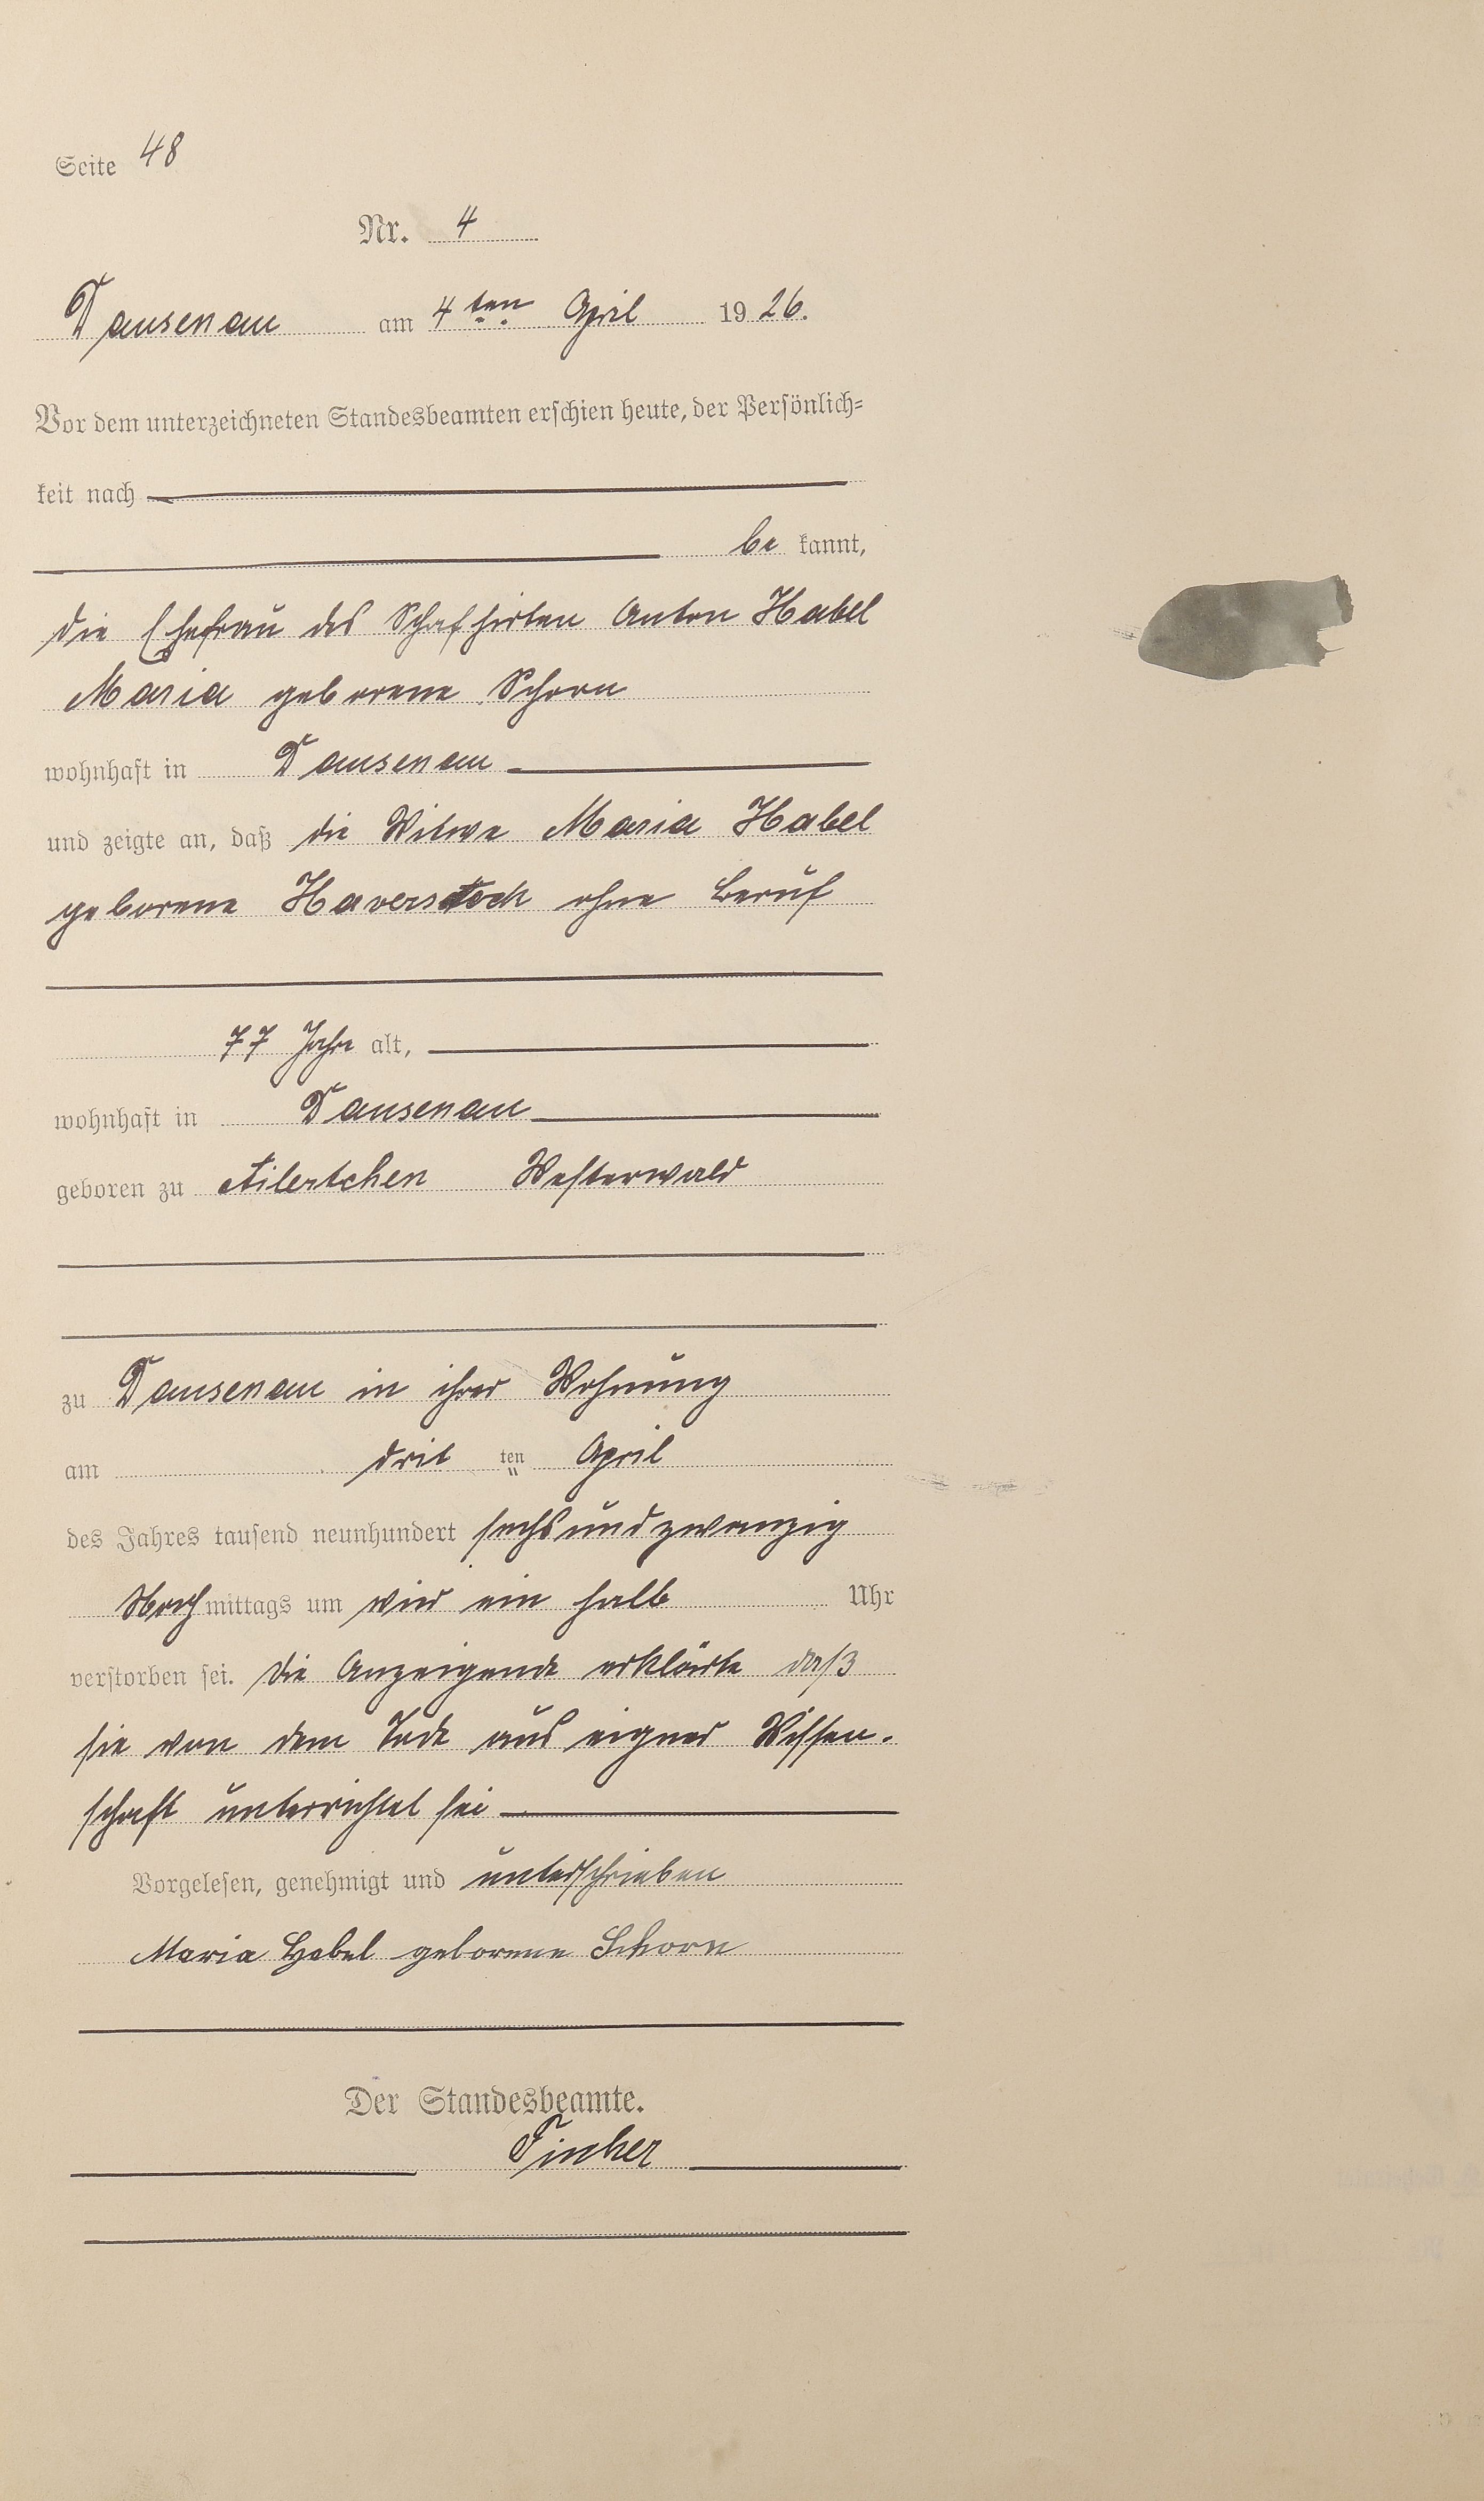 Seite 48
Nr. 4
Dausenau am 4ten April 1926.
Vor dem unterzeichneten Standesbeamten erschien heute, der Persönlich=
keit nach
be kannt,
die Ehefrau des Schafhirten Anton Habel
Maria geborene Schorn
wohnhaft in Dausenau
und zeigte an, daß die Witwe Maria Habel
geborene Haverstock ohne Beruf
77 Jahre alt,
wohnhaft in Dausenau
geboren zu Ailertchen Westerwald
zu Dausenau in ihrer Wohnung
am drit ten April
des Jahres tausend neunhundert sechsundzwanzig
Nachmittags um vier ein halb Uhr
verstorben sei. Die Anzeigende erklärte daß
sie von dem Tode aus eigner Wissen-
schaft unterrichtet sei
Vorgelesen, genehmigt und unterschrieben
Maria Habel geborene Schorn
Der Standesbeamte.